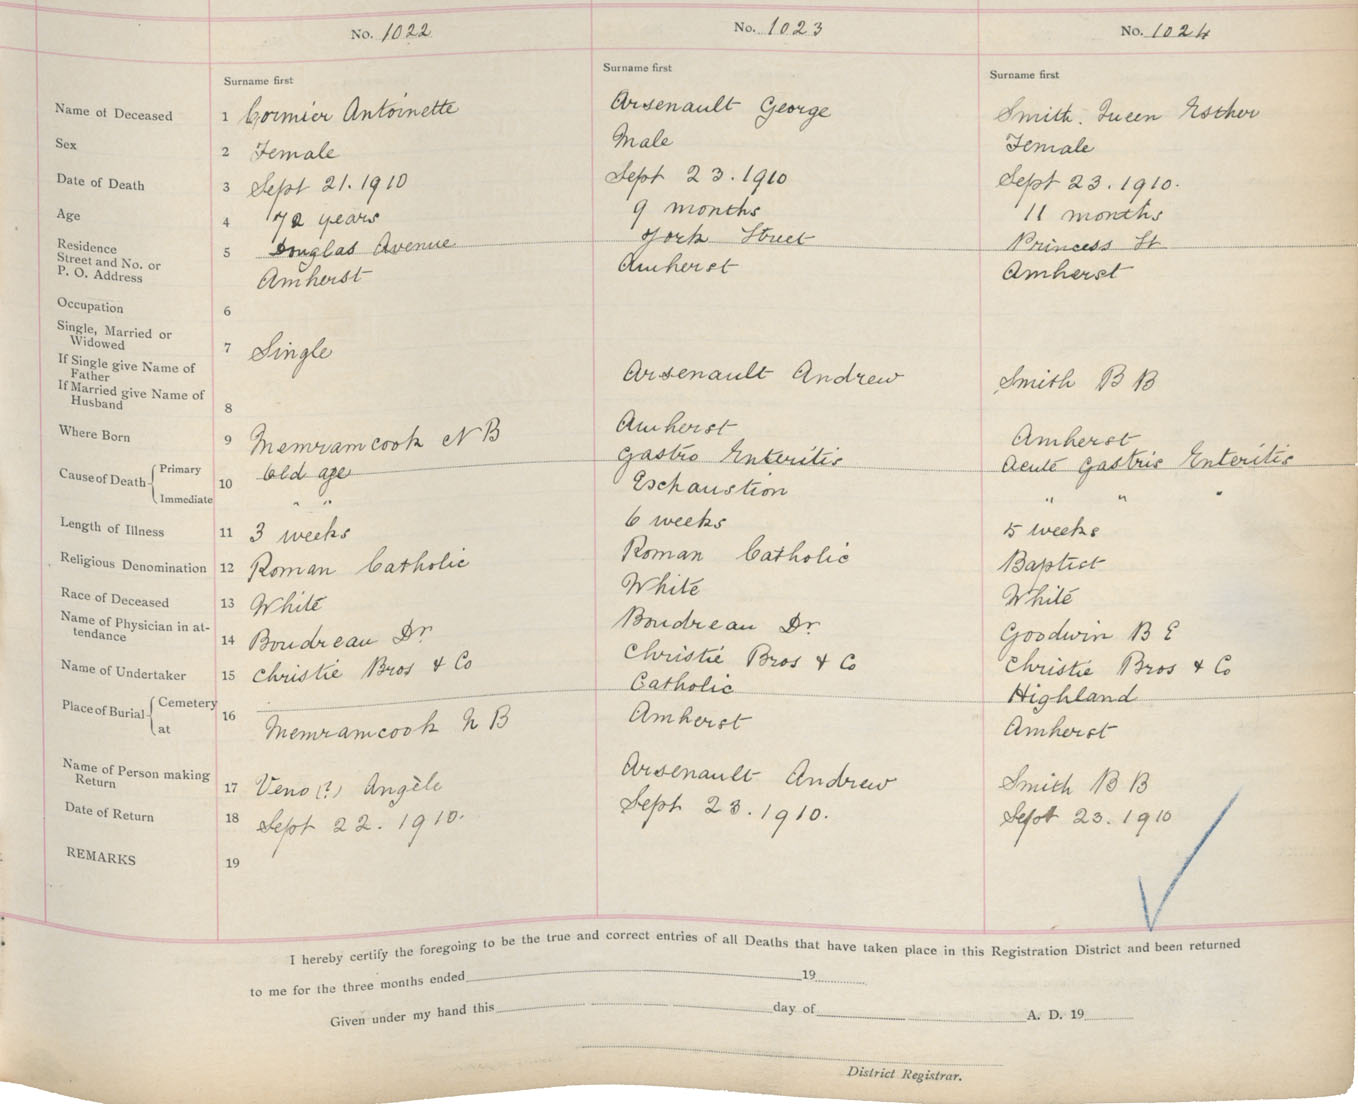 No. 1022 No. 1023 No. 1024
Surname first Surname first Surname first
Name of Deceased 1 Cormier Antoinette Arsenault George Smith. Queen Esther
Sex 2 Female Male Female
Date of Death 3 Sept 21. 1910 Sept 23. 1910 Sept 23. 1910.
Age 4 72 years 9 months 11 months
Residence 5 Douglas Avenue York Street Princess St
Street and No. or
P. O. Address Amherst Amherst Amherst
Occupation 6
Single, Married or
Widowed 7 Single
If Single give Name of
Father Arsenault Andrew Smith B B
If Married give Name of
Husband 8
Where Born 9 Memramcook N B Amherst Amherst
Cause of Death Primary 10 Old age Gastro Enteritis Acute Gastric Enteritis
Immediate " " Exchaustion " " "
Length of Illness 11 3 weeks 6 weeks 5 weeks
Religious Denomination 12 Roman Catholic Roman Catholic Baptist
Race of Deceased 13 White White White
Name of Physician in at-
tendance 14 Boudreau Dr Boudreau Dr. Goodwin B E
Name of Undertaker 15 Christie Bros & Co Christie Bros & Co Christie Bros & Co
Place of Burial Cemetery 16 Catholic Highland
at Memramcook N B Amherst Amherst
Name of Person making
Return 17 Veno (?) Angèle Arsenault Andrew Smith B B
Date of Return 18 Sept 22. 1910. Sept 23. 1910. Sept 23. 1910
REMARKS 19
I hereby certify the foregoing to be the true and correct entries of all Deaths that have taken place in this Registration District and been returned
to me for the three months ended 19
Given under my hand this day of A. D. 19
District Registrar.